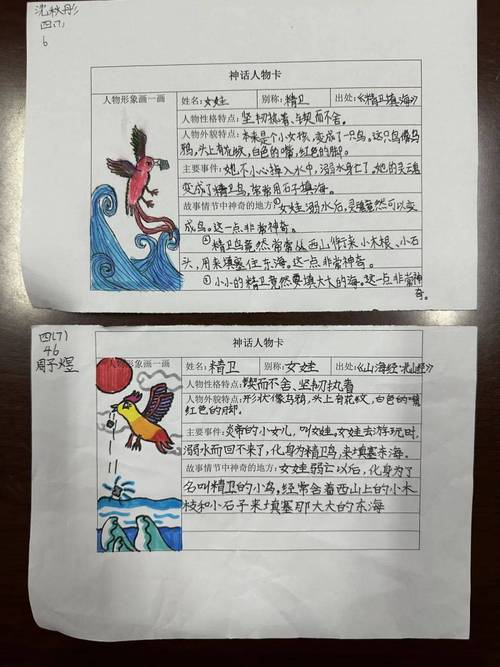 沈秋彤
四(7)
6
神话人物卡
人物形象画一画
姓名:女娃
别称:精卫
出处:《精卫填海》
人物性格特点:坚韧执着、锲而不舍。
人物外貌特点:本来是个小女孩,变成了一只鸟。这只鸟像乌
鸦,头上有花纹,白色的嘴,红色的脚。
主要事件:她不小心掉入水中,溺水身亡了。她的灵魂
变成了精卫鸟,常常用石子填海。
故事情节中神奇的地方:①女娃溺水后,灵魂竟然可以变
成鸟。这一点非常神奇。
②精卫鸟竟然常常从西山衔来小木棍、小石
头,用来填塞住东海。这一点非常神奇。
③小小的精卫竟然要填大大的海。这一点非常神
奇。
四(7)
46
周子煜
神话人物卡
人物形象画一画
姓名:精卫
别称:女娃
出处:《山海经·北山经》
人物性格特点:锲而不舍、坚韧执着
人物外貌特点:形状像乌鸦,头上有花纹,白色的嘴
红色的脚。
主要事件:炎帝的小女儿,叫女娃。女娃去游玩时,
溺水而回不来了,化身为精卫鸟,来填塞东海。
故事情节中神奇的地方:女娃溺亡以后,化身为了
名叫精卫的小鸟,经常含着西山上的小木
枝和小石子来填塞那大大的东海